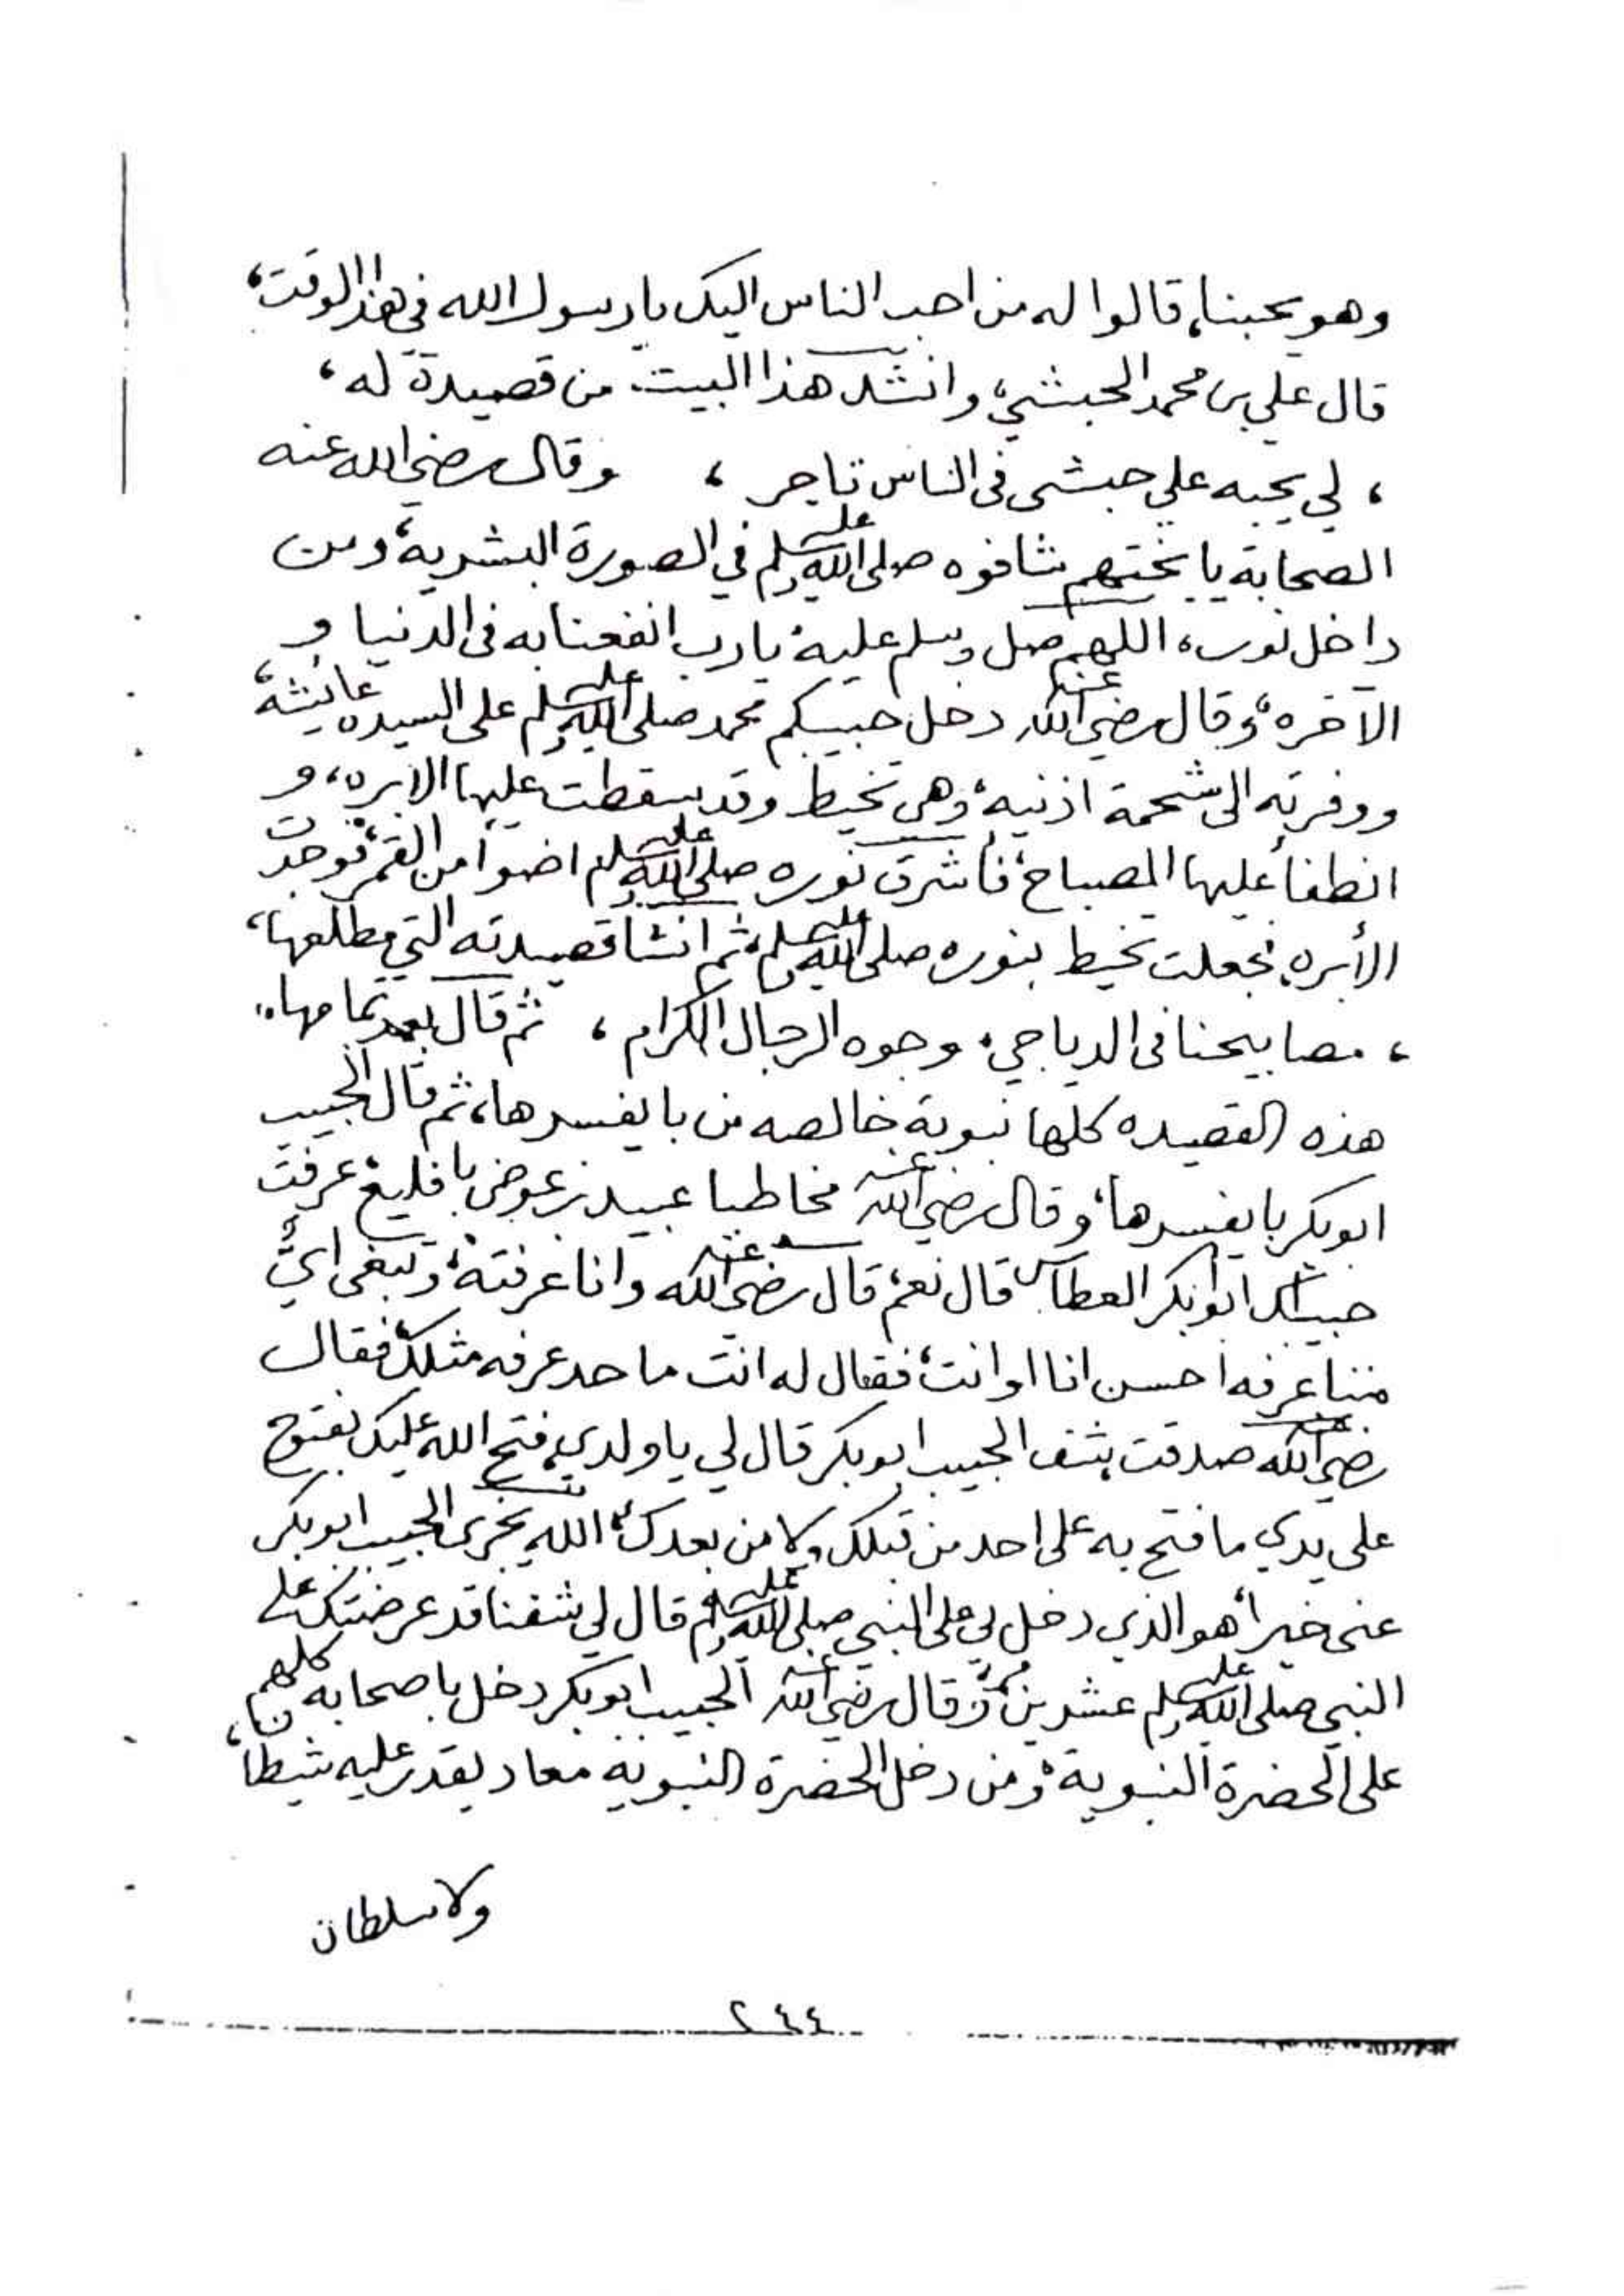 وهو يحبنا، قالوا له من احب الناس اليك يا رسول الله في هذا الوقت،
قال علي بن محمد الحبشي، وانشد هذا البيت من قصيدة له،
، لي يحبه علي حبشي في الناس تاجر ، وقال رضي الله عنه
الصحابة يا بختهم شافوه صلى الله عليه وسلم في الصورة البشرية، ومن
داخل نوره، اللهم صل وسلم عليه، يا رب انفعنا به في الدنيا و
الآخره، وقال رضي الله عنه دخل حبيبكم محمد صلى الله عليه وسلم على السيده عائشة،
ووفرته الى شحمة اذنيه، وهي تخيط وقد سقطت عليها الابره، و
انطفأ عليها المصباح، فأشرق نوره صلى الله عليه وسلم اضوأ من القمر، فوجدت
الأبره، فجعلت تخيط بنوره صلى الله عليه وسلم، ثم انشا قصيدته التي مطلعها،
، مصابيحنا في الدياجي، وجوه الرجال الكرام ، ثم قال بعد تمامها،
هذه القصيده كلها نبوية خالصه من با يفسرها، ثم قال الحبيب
ابوبكر با يفسرها، وقال رضي الله عنه مخاطبا عبيد بن عوض بافليع، عرفت
حبيبك ابوبكر العطاس قال نعم، قال رضي الله عنه وانا عرفته، وتبغى ايُّ
مننا عرفه احسن انا او انت، فقال له انت ما حد عرفه مثلك، فقال
رضي الله عنه صدقت، شف الحبيب ابوبكر قال لي يا ولدي، فتح الله عليك بفتوح
على يدي ما فتح به على احد من قبلك ولا من بعدك، الله يجزي الحبيب ابوبكر
عني خيرا، هو الذي دخل بي على النبي صلى الله عليه وسلم قال لي شفنا قد عرضتك على
النبي صلى الله عليه وسلم عشرين مره، وقال رضي الله عنه الحبيب ابوبكر دخل باصحابه كلهم
على الحضرة النبوية، ومن دخل الحضرة النبوية معاد يقدر عليه شيطان،
ولا سلطان
٢٤٤